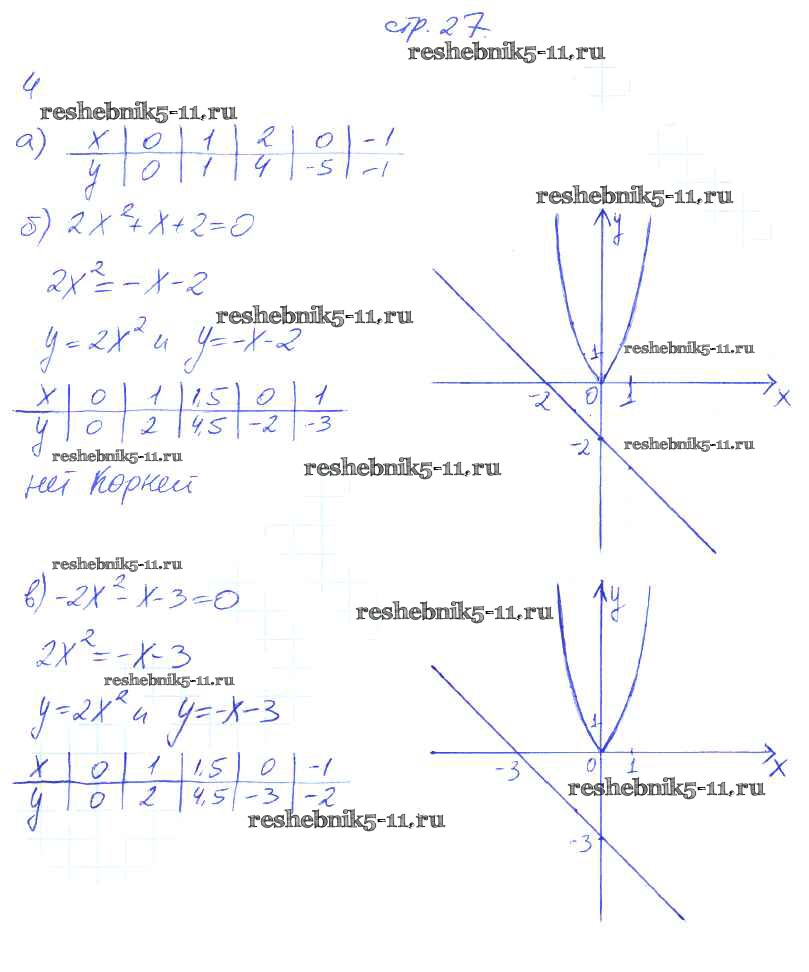 стр. 27.
reshebnik5-11.ru
4
reshebnik5-11.ru
а) x | 0 | 1 | 2 | 0 | -1
y | 0 | 1 | 4 | -5 | -1
reshebnik5-11.ru
б) 2x² + x + 2 = 0
2x² = -x - 2
reshebnik5-11.ru
y = 2x² и y = -x - 2
x | 0 | 1 | 1,5 | 0 | 1
y | 0 | 2 | 4,5 | -2 | -3
reshebnik5-11.ru
reshebnik5-11.ru
нет корней
y
1
reshebnik5-11.ru
-2 0 1 x
-2
reshebnik5-11.ru
reshebnik5-11.ru
в) -2x² - x - 3 = 0
reshebnik5-11.ru
2x² = -x - 3
reshebnik5-11.ru
y = 2x² и y = -x - 3
x | 0 | 1 | 1,5 | 0 | -1
y | 0 | 2 | 4,5 | -3 | -2
reshebnik5-11.ru
y
1
-3 0 1 x
reshebnik5-11.ru
-3